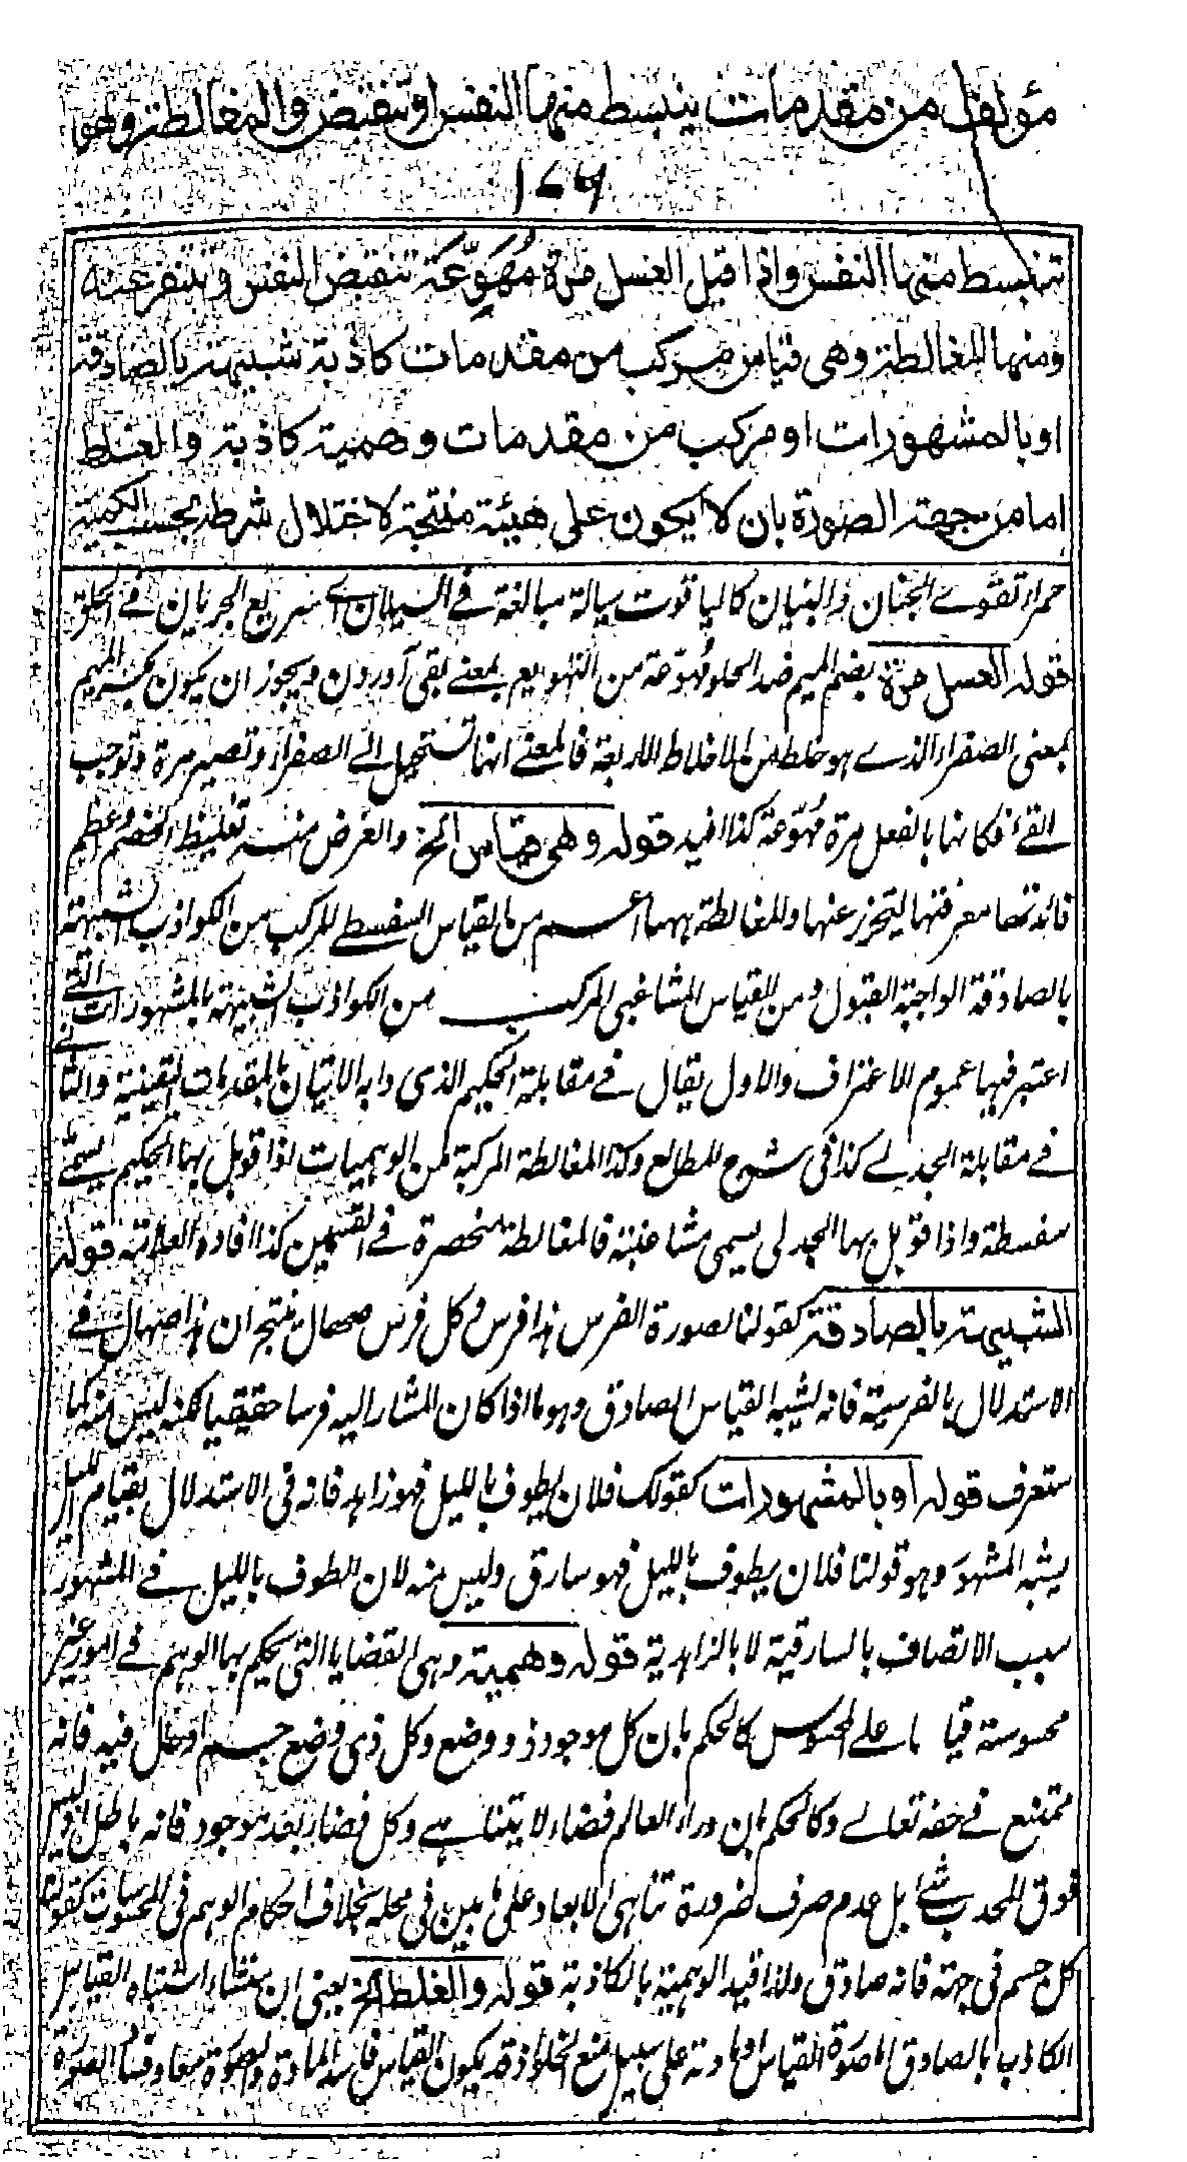 مؤلف من مقدمات ينبسط منها النفس او تنقبض والمغالطة وهو
۱۷۶
تنبسط منها النفس واذا قيل العسل مرة مهوّعة تنقبض النفس وتتنفر عنه
ومنها المغالطة وهى قياس مركب من مقدمات كاذبة شبيهة بالصادقة
او بالمشهورات او مركب من مقدمات وهمية كاذبة والغلط
اما من جهة الصورة بان لا يكون على هيئة منتجة لاختلال شرط بحسب الكمية
حمراء تقوے الجنان ذائبان كالياقوت سيالة مبالغة فے السيلان اے سريع الجريان فے الحلق
قوله العسل مرة بضم الميم ضد الحلو مُهوّعة من التهويع بمعنے بقى آوردن ويجوز ان يكون بكسر الميم
بمعنى الصفراء الذے هو خلط من الاخلاط الاربعة فالمعنے انها تستحيل الے الصفراء وتصير مرة وتوجب
القے فكانها بالفعل مرة مُهوّعة كذا افيد قوله وهى قياس الخ والغرض منه تغليط الخصم واعظم
فائدتها معرفتها للتحرز عنها والمغالطة ههنا اعم من القياس السفسطے المركب من الكواذب الشبيهة
بالصادقة الواجبة القبول ومن القياس المشاغبى المركب من الكواذب الشبيهة بالمشهورات التے
اعتبر فيها عموم الاعتراف والاول يقال فے مقابلة الحكيم الذى دابه الاتيان بالمقدمات اليقينية والثانے
فے مقابلة الجدلے كذا فى شرح المطالع وكذا المغالطة المركبة من الوهميات اذا قوبل بها الحكيم يسمے
سفسطة واذا قوبل بها الجدلى يسمى مشاغبة فالمغالطة منحصرة فے القسمين كذا افاده العلامة قوله
الشبيهة بالصادقة كقولنا لصورة الفرس هذا فرس وكل فرس صهال ينتج ان هذا صهال فے
الاستدلال بالفرسية فانه يشبه القياس الصادق وهو ما اذا كان المشار اليه فرسا حقيقيا لكنه ليس منه كما
ستعرف قوله او بالمشهورات كقولك فلان يطوف بالليل فهو زاهد فانه فى الاستدلال بقيام الليل
يشبه المشهور وهو قولنا فلان يطوف بالليل فهو سارق وليس منه لان الطوف بالليل فے المشهور
سبب الاتصاف بالسارقية لا بالزاهدية قوله وهمية وهى القضايا التى يحكم بها الوهم فے امور غير
محسوسة قيا سا علے المحسوس كالحكم بان كل موجود ذو وضع وكل ذى وضع جسم او حال فيه فانه
ممتنع فے حقه تعالے وكالحكم بان وراء العالم فضاء لا يتناهے وكل فضاء بعد موجود فانه باطل وليس
فوق المحدب شے بل عدم صرف ضرورة تناهى الابعاد على ما بين فى محله بخلاف احكام الوهم فى المحسوسات كقولنا
كل جسم فى جهة فانه صادق ولذا قيد الوهمية بالكاذبة قوله والغلط الخ يعنى ان منشاء اشتباه القياس
الكاذب بالصادق اما صورة القياس او مادته على سبيل منع الخلو اذ قد يكون القياس فاسد المادة والصورة معا وفساد الصورة